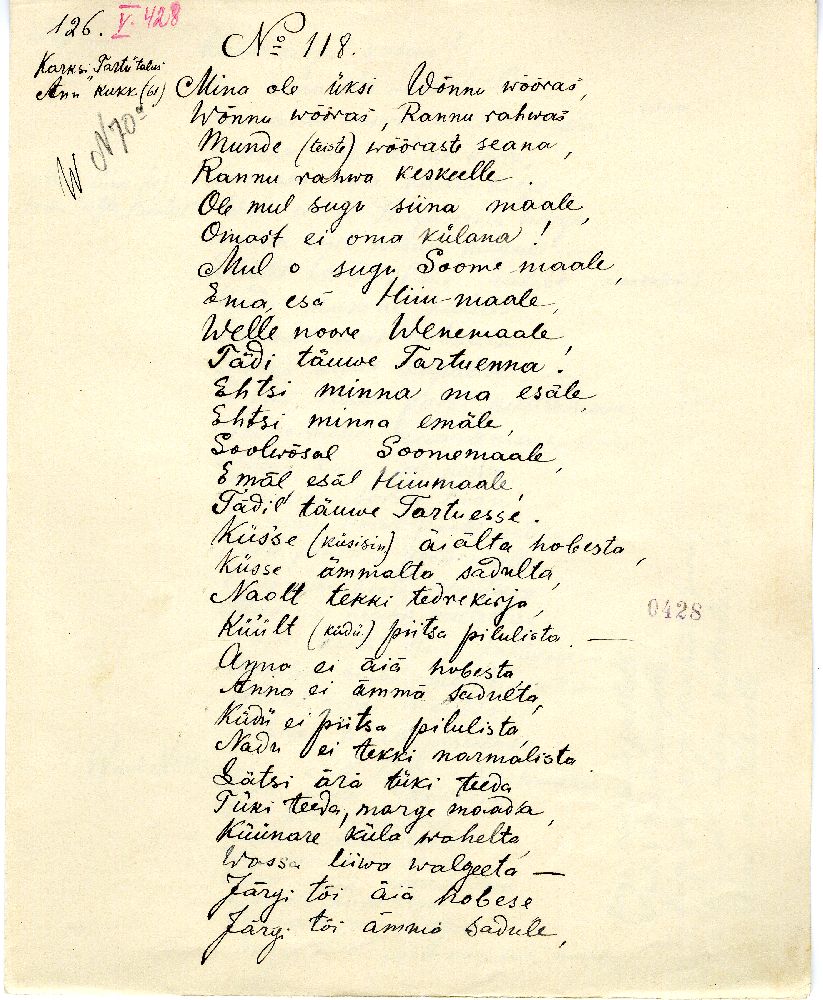 126. V. 428
No 118.
Karksi, Tartu talus
Ann Kukk (61)
W N 70
Mina ole üksi Wõnnu wööras,
Wõnnu wööras, Rannu rahwas
Munde (teiste) wööraste seana,
Rannu rahwa keskeelle.
Ole mul sugu siina maale,
Omast ei oma külana!
Mul o sugu Soome maale,
Ema, esä Hiiu-maale,
Welle noore Wenemaale,
Tädi täuwe Tartuenna!
Ehtsi minna ma esäle,
Ehtsi minna emäle,
Soolwõsal Soomemaale,
Emäl esäl Hiiumaale,
Tädil täuwe Tartuesse.
Küsse (küsisin) äiälta hobesta,
Küsse ämmalta sadulta,
Naolt tekki tedrekirja,
Küült (küdü) piitsa pilulista. —
Anna ei äiä hobesta,
Anna ei ämmä sadulta,
Küdü ei piitsa pilulista,
Nadu ei tekki narmalista.
Lätsi ärä tüki teeda
Tüki teeda, marge maada,
Küünare küla wahelta,
Wassa liiwa walgeeta —
Järgi tõi äiä hobese
Järgi tõi ämmä sadule,
0428